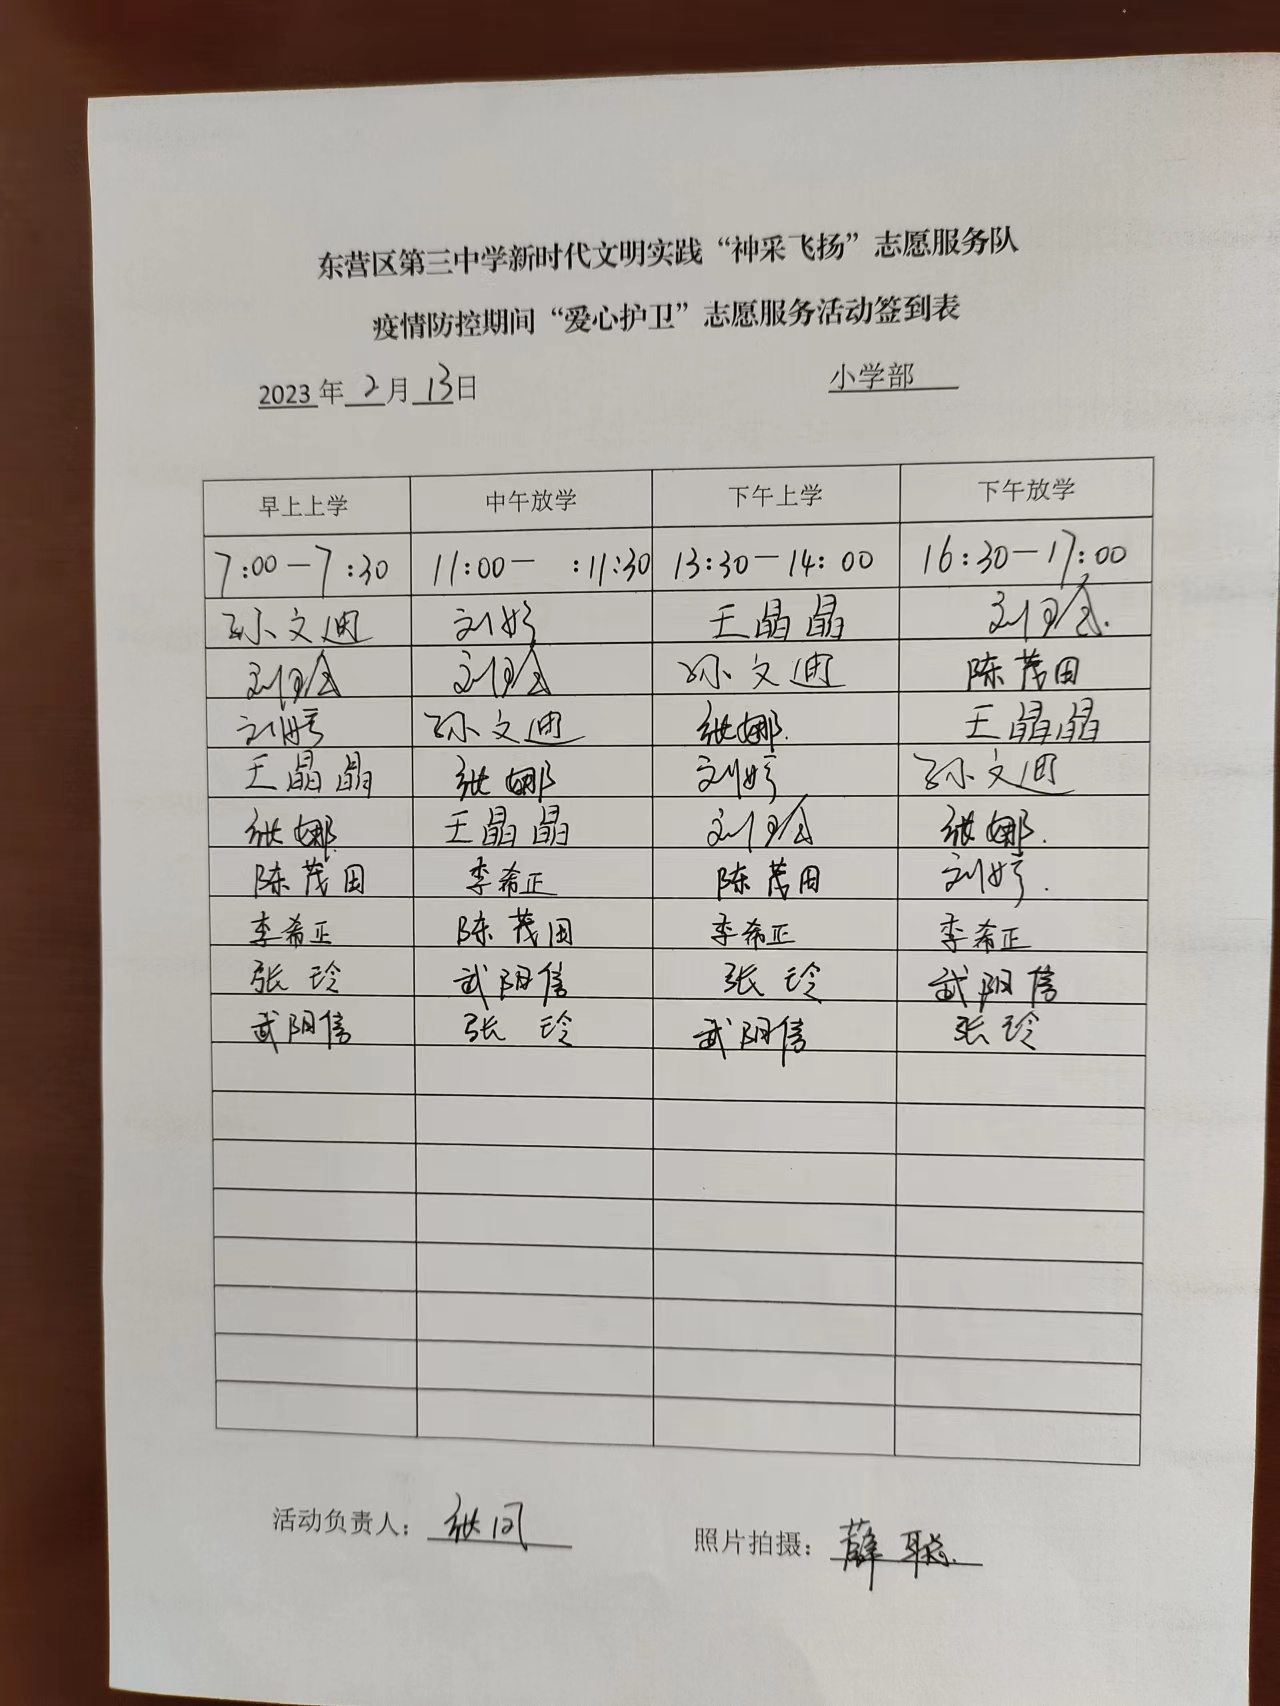 东营区第三中学新时代文明实践“神采飞扬”志愿服务队
疫情防控期间“爱心护卫”志愿服务活动签到表
2023年 2月 13日 小学部
早上上学 中午放学 下午上学 下午放学
7:00—7:30 11:00— :11:30 13:30—14:00 16:30—17:00
孙文迪 刘婷 王晶晶
孙文迪 陈茂田
刘婷 孙文迪 张娜. 王晶晶
王晶晶 张娜 刘婷 孙文迪
张娜 王晶晶 张娜.
陈茂田 李希正 陈茂田 刘婷.
李希正 陈茂田 李希正 李希正
张玲 武阳信 张玲 武阳信
武阳信 张玲 武阳信 张玲
活动负责人: 照片拍摄: 薛聪